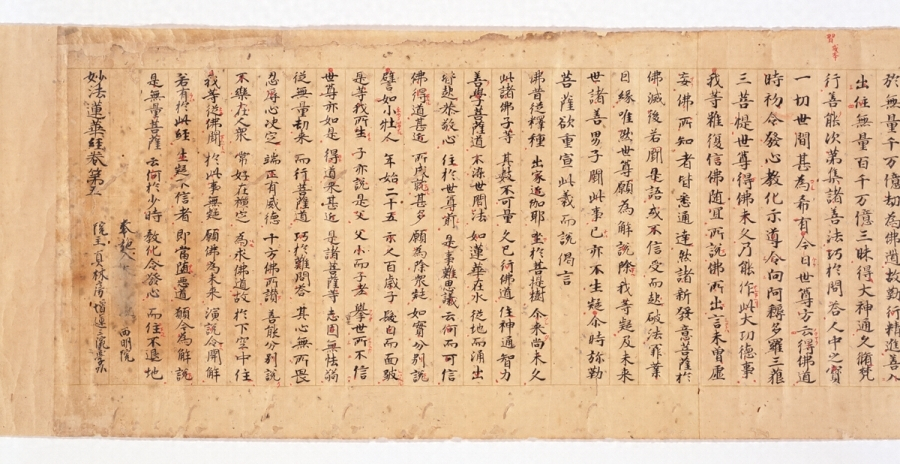 於無量千万億劫為佛道故勤行精進善入
出住無量百千万億三昧得大神通久脩梵
行善能次第集諸善法巧於問答人中之寶
一切世間甚為希有今日世尊方云得佛道
時初令發心教化示導令向阿耨多羅三藐
三菩提世尊得佛未久乃能作此大功德事
我等雖復信佛隨宜所說佛所出言未曾虛
妄佛所知者皆悉通達然諸新發意菩薩於
佛滅後若聞是語或不信受而起破法罪業
因緣唯然世尊願為解說除我等疑及未來
世諸善男子聞此事已亦不生疑尒時弥勒
菩薩欲重宣此義而說偈言
佛昔從釋種 出家近伽耶 坐於菩提樹 尒來尚未久
此諸佛子等 其數不可量 久已行佛道 住神通智力
善學菩薩道 不染世間法 如蓮華在水 從地而涌出
皆起恭敬心 住於世尊前 是事難思議 云何而可信
佛得道甚近 所成就甚多 願為除衆疑 如實分別說
譬如小壯人 年始二十五 示人百歲子 髮白而面皺
是等我所生 子亦說是父 父小而子老 舉世所不信
世尊亦如是 得道來甚近 是諸菩薩等 志固無怯弱
從無量劫來 而行菩薩道 巧於難問荅 其心無所畏
忍辱心决定 端正有威德 十方佛所讃 善能分別說
不樂在人衆 常好在禪定 為求佛道故 於下空中住
我等從佛聞 於此事無疑 願佛為未來 演說令開解
若有於此經 生疑不信者 即當墮惡道 願今為解說
是無量菩薩 云何於少時 教化令發心 而住不退地
妙法蓮華經卷第五
西明院
院主真林房